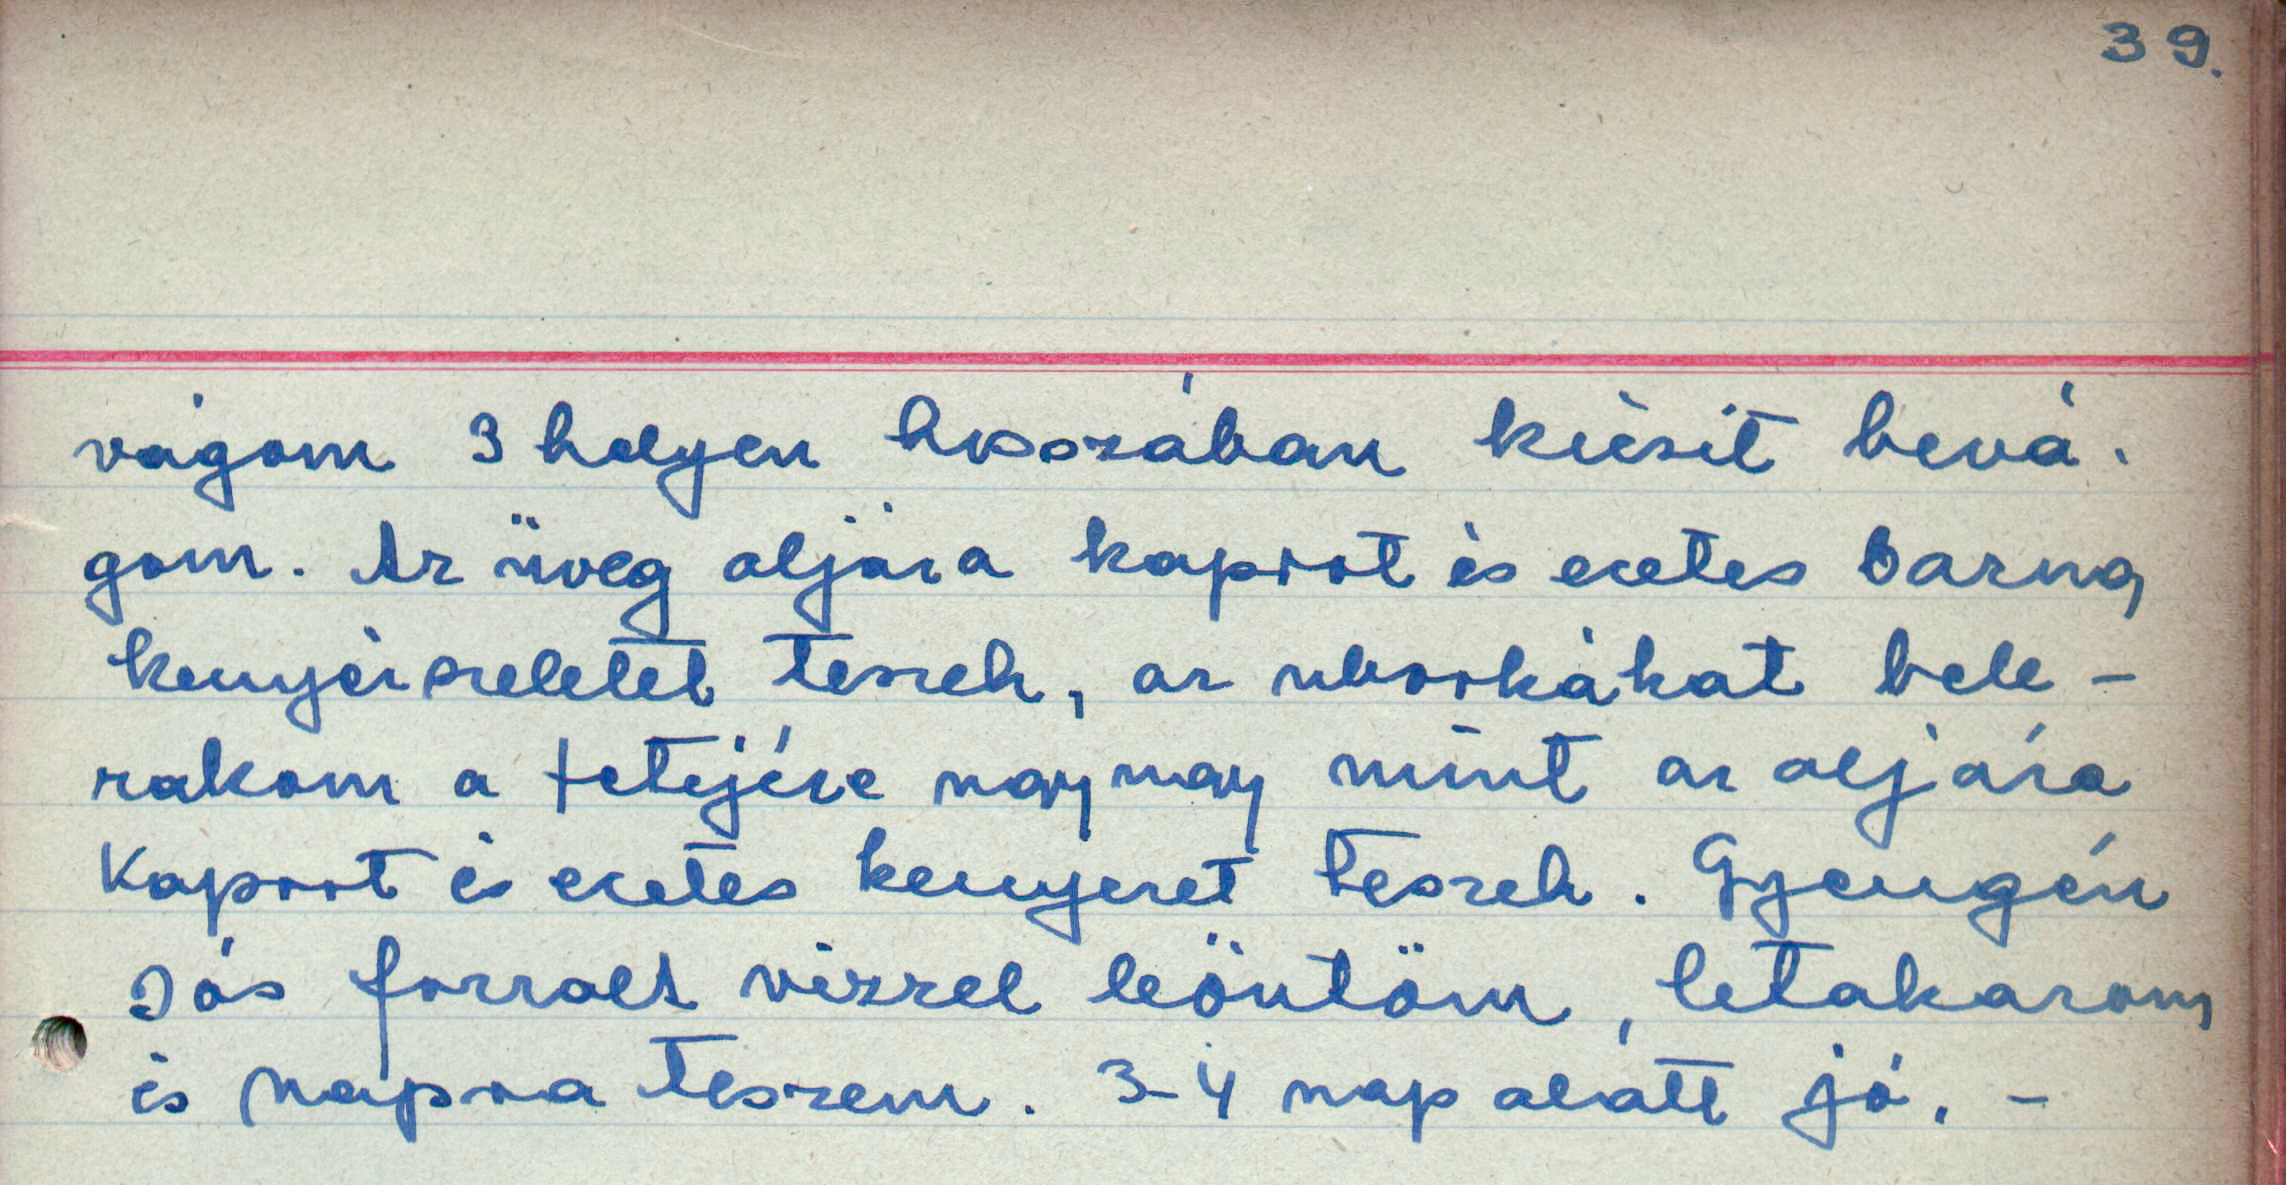 39.
vágom 3 helyen hosszában kicsit bevá-
gom. Az üveg aljára kaprot és ecetes barna
kenyérszeletet teszek, az uborkákat bele-
rakom a tetejére ugyanúgy mint az aljára
kaprot és ecetes kenyeret teszek. Gyengén
sós forralt vízzel leöntöm, letakarom
és napra teszem. 3-4 nap alatt jó. -